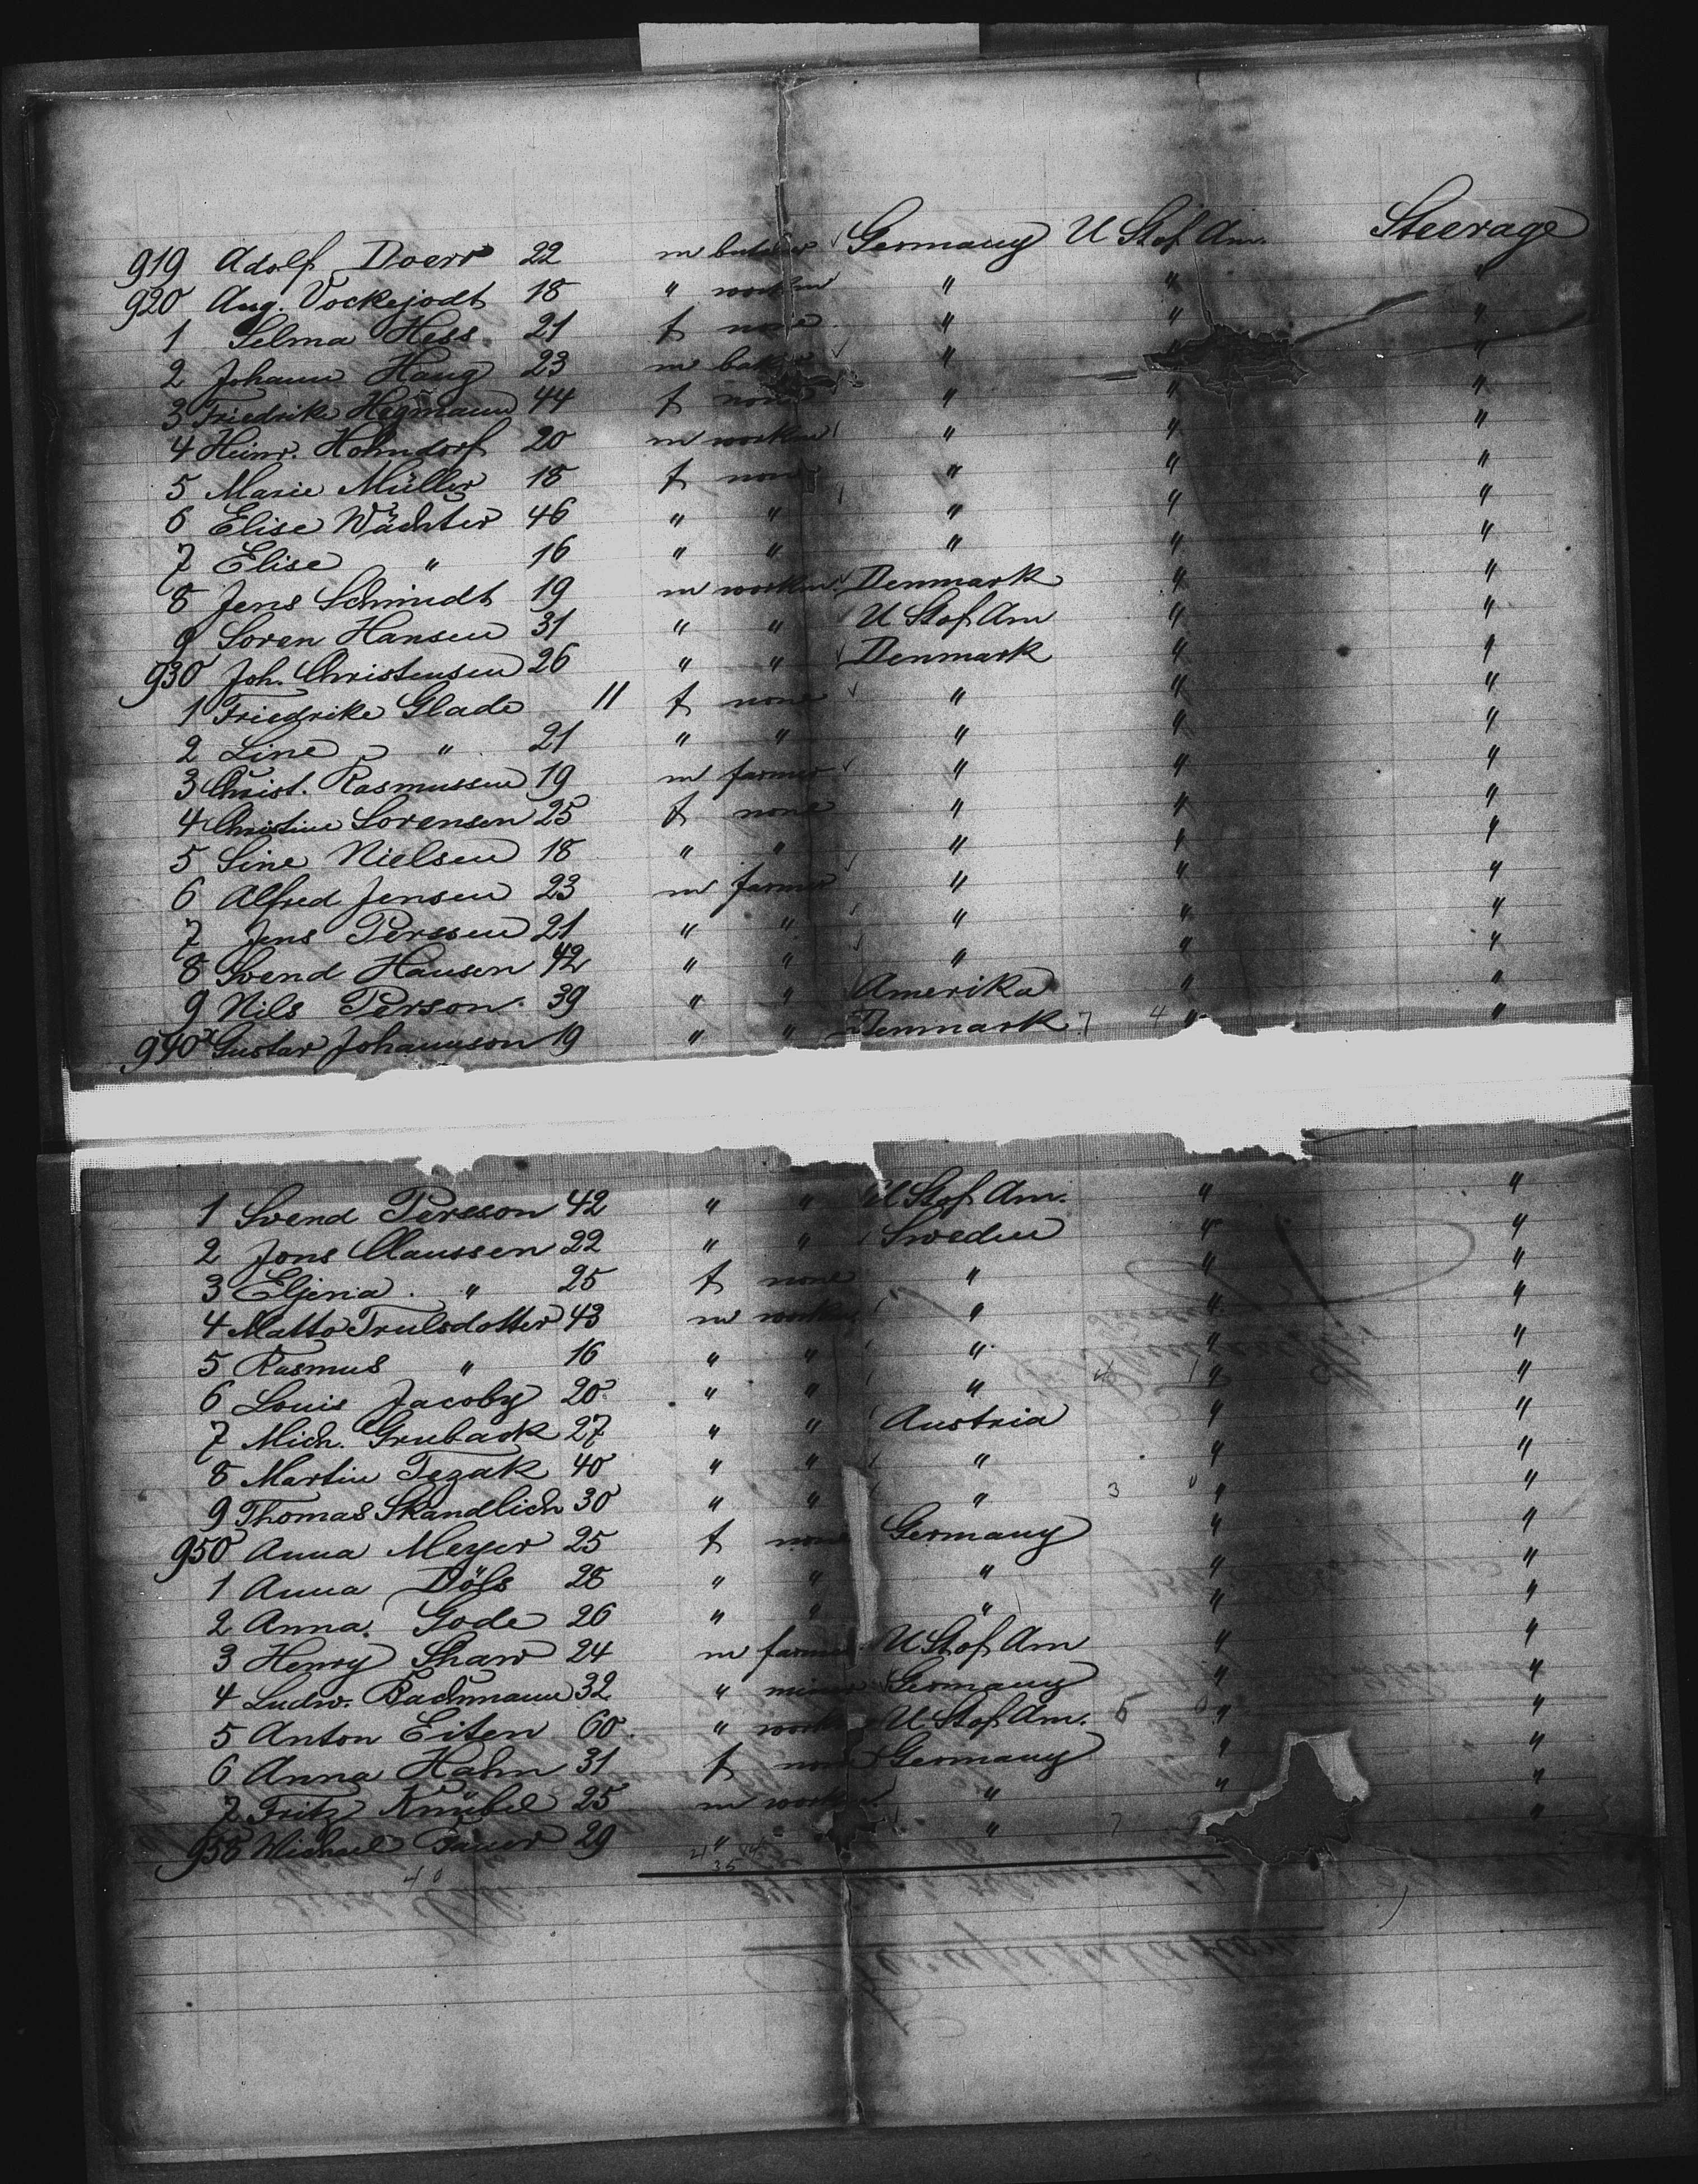 919 Adolf Doerr 22 m butcher Germany U St of Am. Steerage
920 Aug. Vockejodt 18 " workm " " "
1 Selma Hess 21 f none " " "
2 Johann Haug 23 m baker " " "
3 Friedrike Hegmann 44 f none " " "
4 Heinr. Hohndorf 20 m workm " " "
5 Marie Müller 18 f none " " "
6 Elise Wächter 46 " " " " "
7 Elise " 16 " " " " "
8 Jens Schmidt 19 m workm. Denmark " "
9 Soren Hansen 31 " " U St of Am " "
930 Joh. Christensen 26 " " Denmark " "
1 Friedrike Glade 11 f none " " "
2 Line " 21 " " " " "
3 Christ. Rasmussen 19 m farmer " " "
4 Christine Sorensen 25 f none " " "
5 Sine Nielsen 18 " " " " "
6 Alfred Jensen 23 m farmer " " "
7 Jens Perssen 21 " " " " "
8 Svend Hansen 42 " " " " "
9 Nils Person 39 " " Amerika " "
940 x Gustav Johannson 19 " " Denmark 7 4 " "
1 Svend Persson 42 " " U St of Am. " "
2 Jons Claussen 22 " " Sweden " "
3 Eljena " 25 f none " " "
4 Matto Trulsdotter 43 m workm " " "
5 Rasmus " 16 " " " " "
6 Louis Jacoby 20 " " " 4 1 " "
7 Mich. Gruback 27 " " Austria " "
8 Martin Tezak 40 " " " " "
9 Thomas Skandlich 30 " " " 3 0 " "
950 Anna Meyer 25 f none Germany " "
1 Anna Döls 28 " " " " "
2 Anna. Gode 26 " " " " "
3 Henry Shaw 24 m farmer U St of Am " "
4 Ludw. Bachmann 32 " miner Germany " "
5 Anton Eiten 60 " workm U St of Am. 6 0 " "
6 Anna Hahn 31 f none Germany " "
7 Fritz Knübel 25 m workm. " " "
958 Michael Bauer 29 " " 7 "
40 35